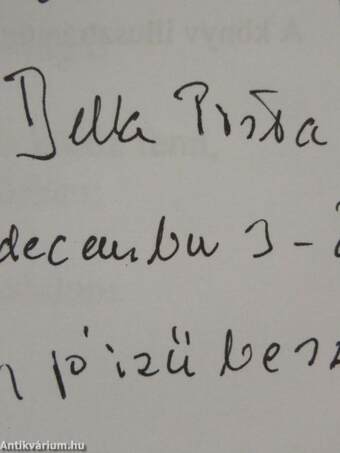 Bella Pista
december 3-
jóizű besz
Antikvárium.hu